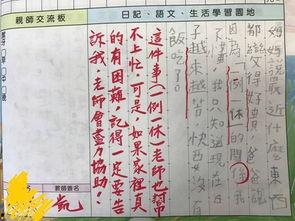 親師交流板
日記、語文、生活學習園地
媽媽說最近什麼東西
都變得好貴，爸爸說
因為一例一休的關係
子越來越苦，快要沒有
飯吃了。
這件事（一例一休）老師也幫
不上忙，可是，如果家裡真
的有困難，記得一定要告
訴我，老師會盡力協助！
教師簽名